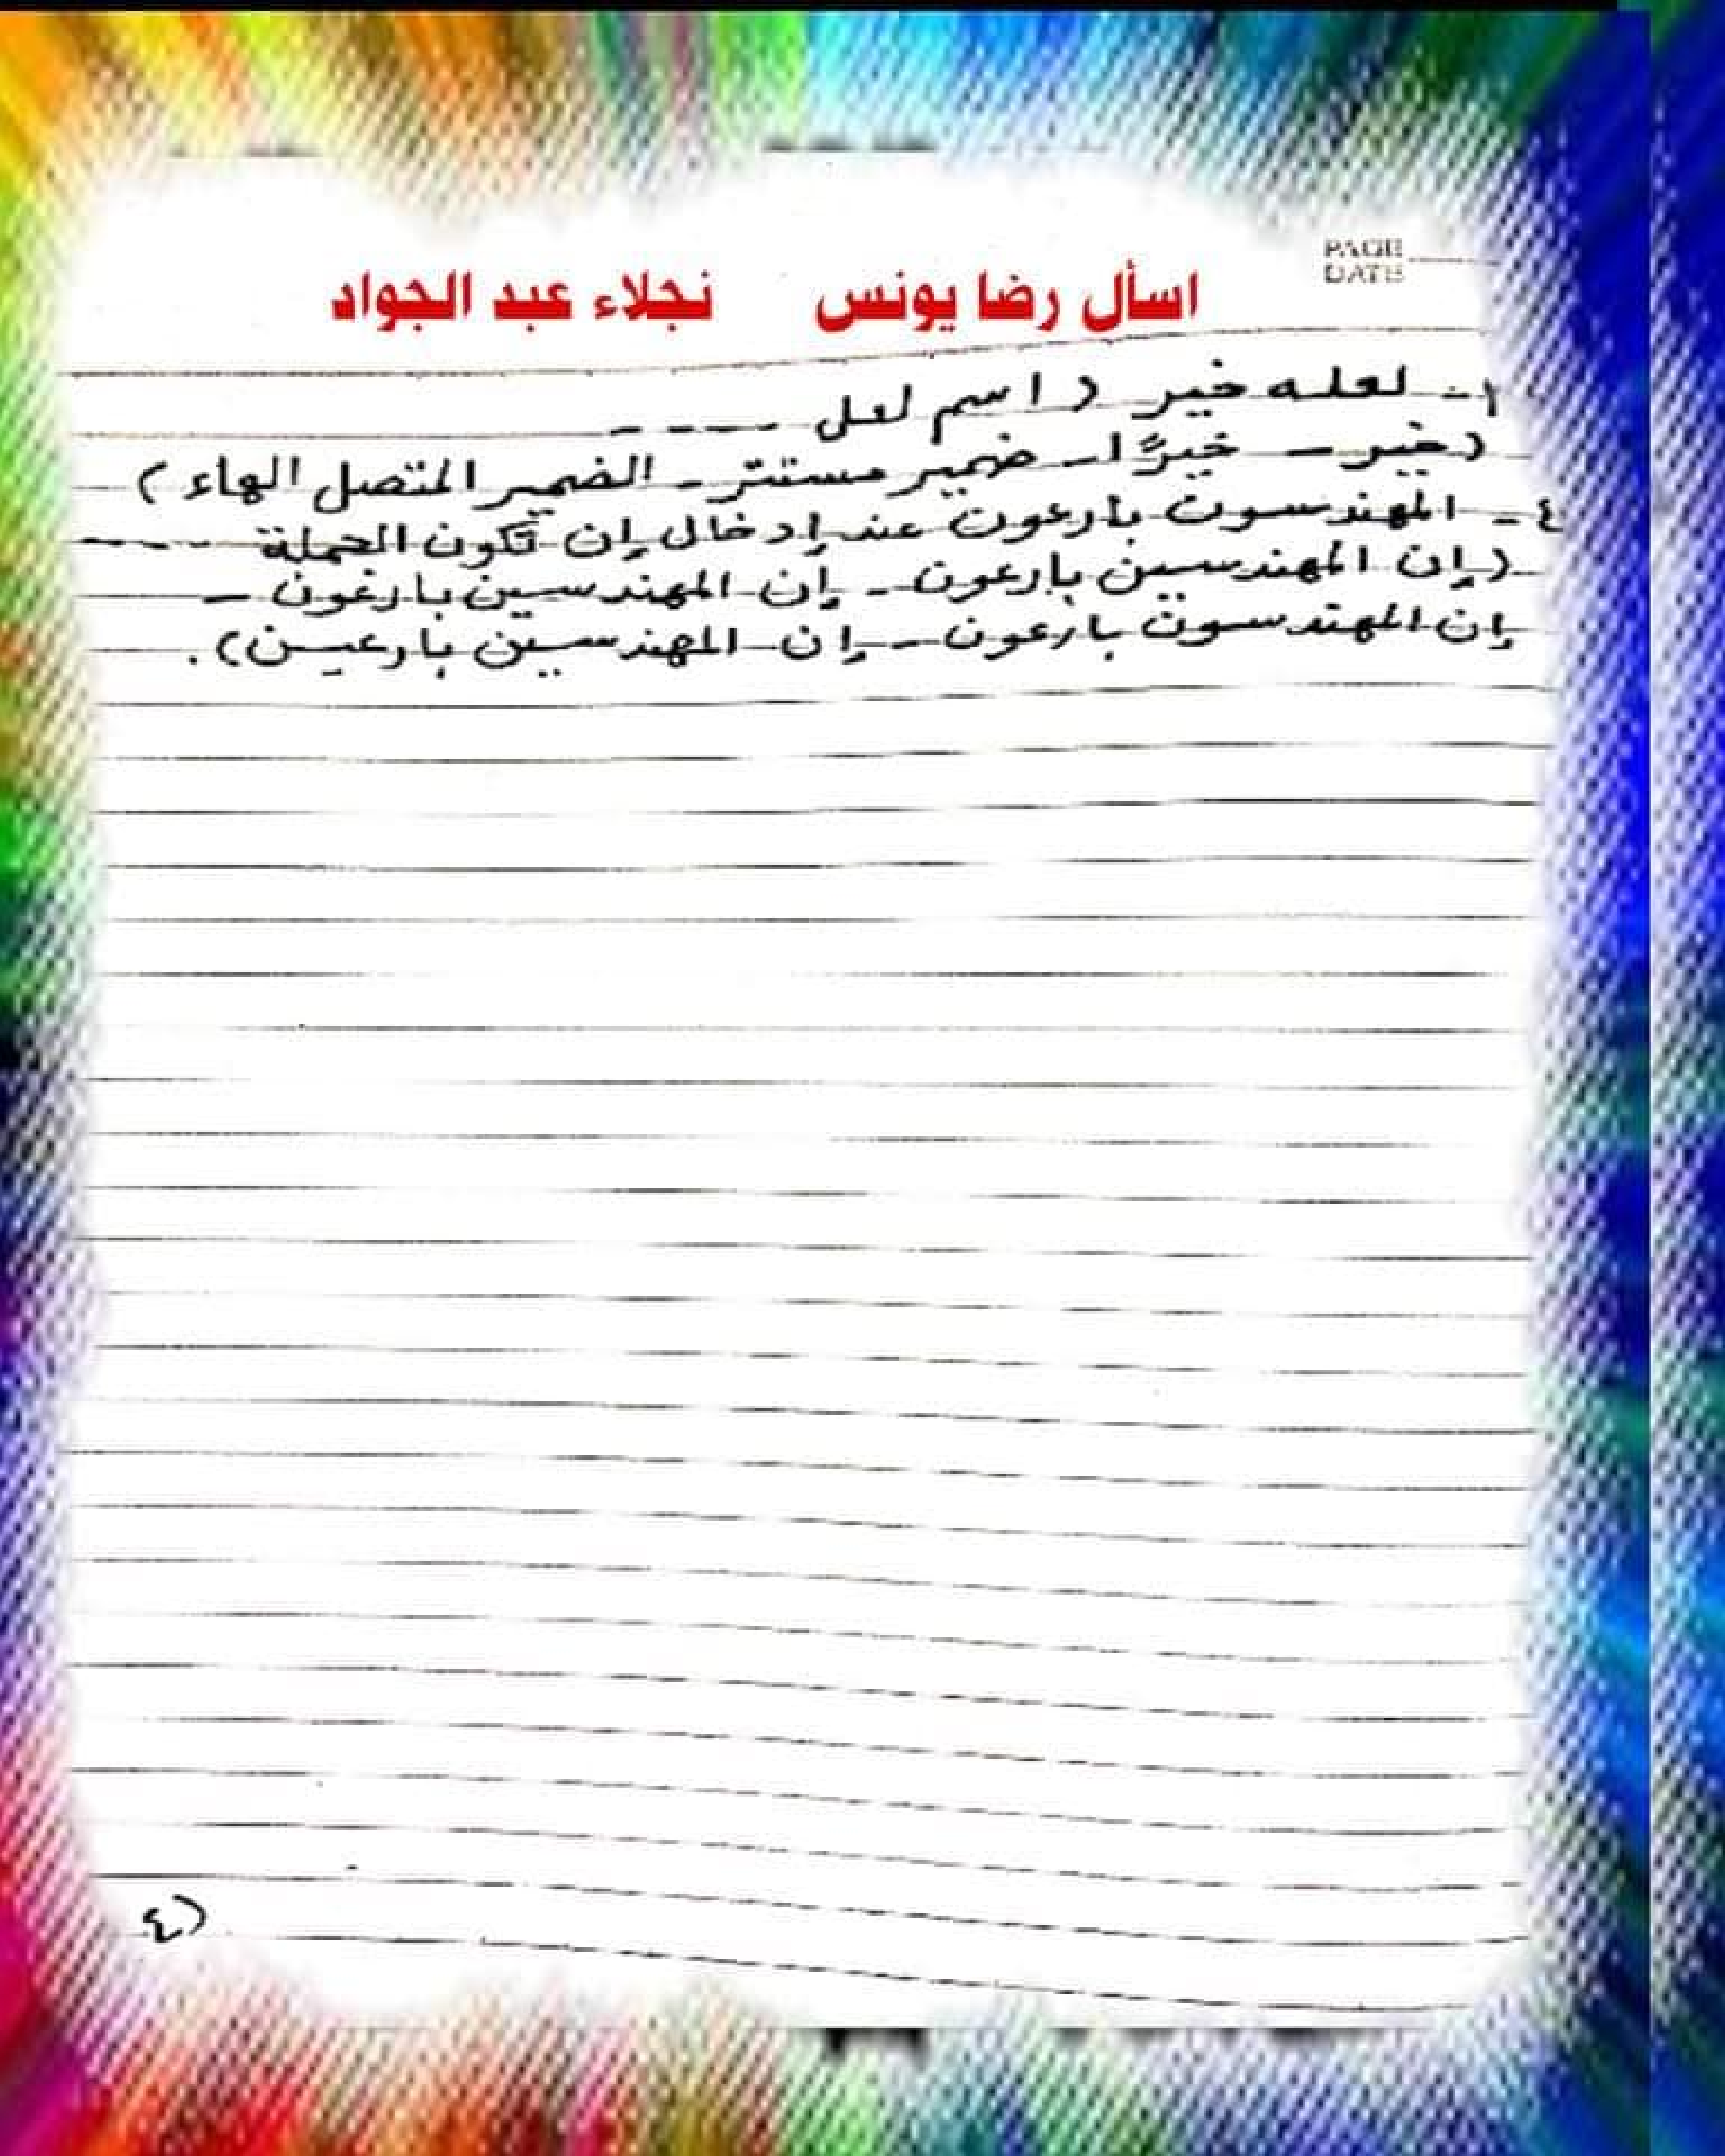 PAGE
DATE
اسأل رضا يونس نجلاء عبد الجواد
١- لعله خير (اسم لعل ----
(خير - خيرًا - ضمير مستتر - الضمير المتصل الهاء)
٤- المهندسون بارعون عند إدخال إن تكون الجملة ----
(إن المهندسين بارعون - إن المهندسين بارغون -
إن المهندسون بارعون - إن المهندسين بارعين).
(٤